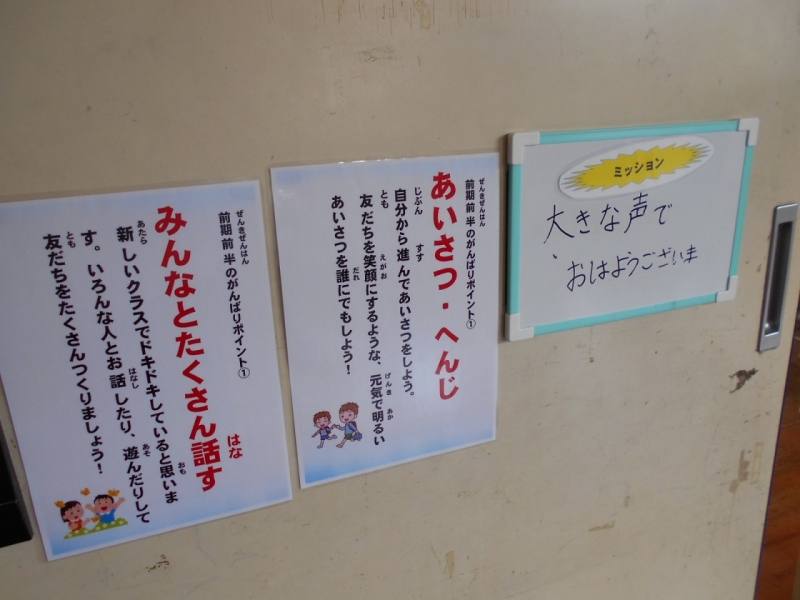 ミッション
大きな声で
おはようございま
前期前半のがんばりポイント①
あいさつ・へんじ
自分から進んであいさつをしよう。
友だちを笑顔にするような、元気で明るい
あいさつを誰にでもしよう！
前期前半のがんばりポイント①
みんなとたくさん話す
新しいクラスでドキドキしていると思いま
す。いろんな人とお話したり、遊んだりして
友だちをたくさんつくりましょう！